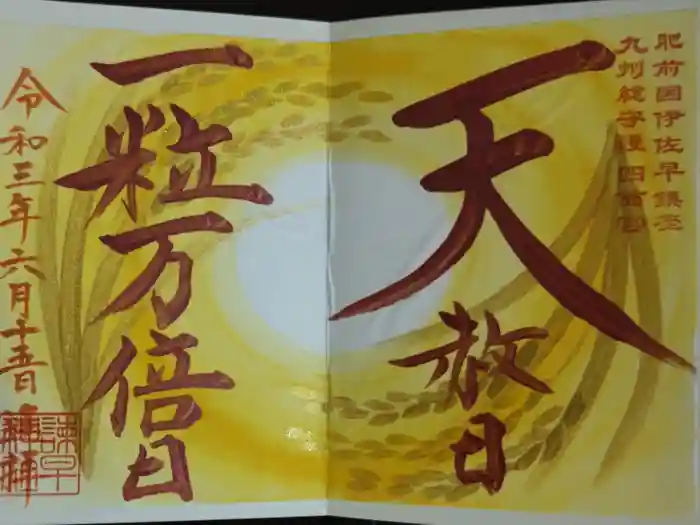 肥前国伊佐早鎮座
九州総守護 四面宮
天赦日
一粒万倍日
令和三年六月十五日
諫早
拝